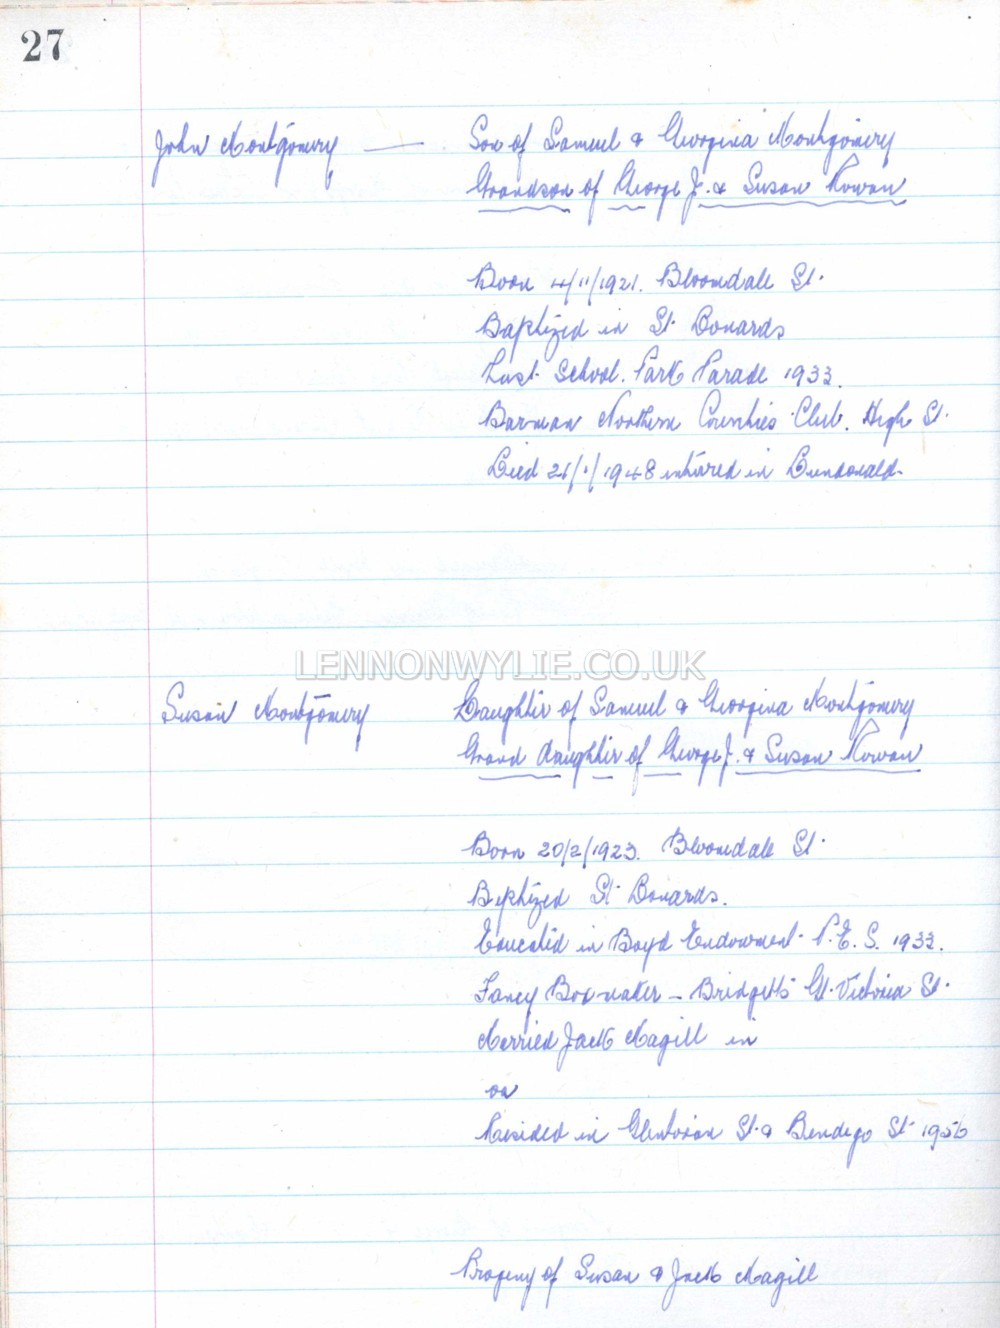 27
John Montgomery — Son of Samuel & Georgina Montgomery
Grandson of George J. & Susan Rowan
Born 4/11/1921. Bloomdale St.
Baptized in St. Donards
Last School. Park Parade 1933.
Barman Northern Counties Club. High St.
Died 21/1/1948 intured in Dundonald.
LENNONWYLIE.CO.UK
Susan Montgomery Daughter of Samuel & Georgina Montgomery
Grand daughter of George J. & Susan Rowan
Born 20/2/1923. Bloomdale St.
Baptized St. Donards.
Educated in Boyd Endowment P.E.S. 1933.
Fancy Boxmaker - Bridgetts Gt. Victoria St.
Married Jack Magill in
on
Resided in Glentoran St. & Bendigo St. 1956
Progeny of Susan & Jack Magill